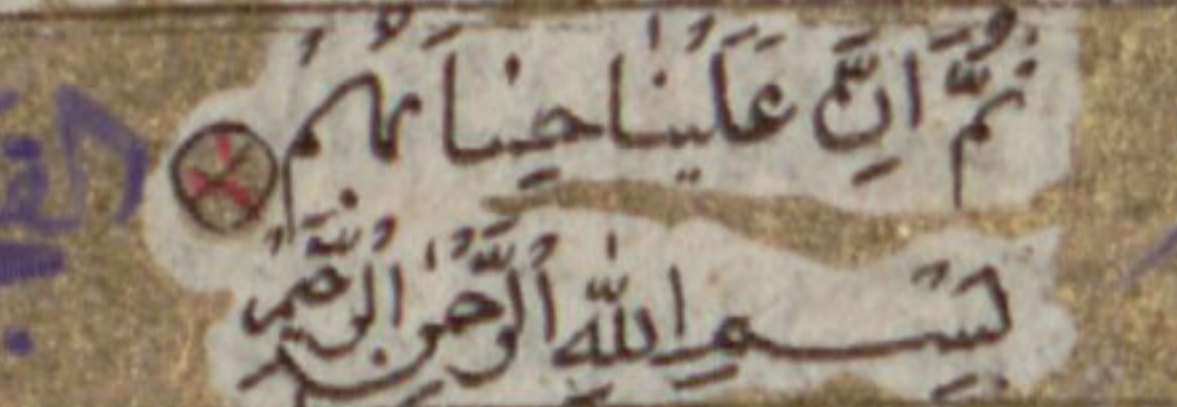 ثُمَّ اِنَّ عَلَيْنَا حِسَابَهُمْ
بِسْمِ اللّٰهِ الرَّحْمٰنِ الرَّحِيْمِ